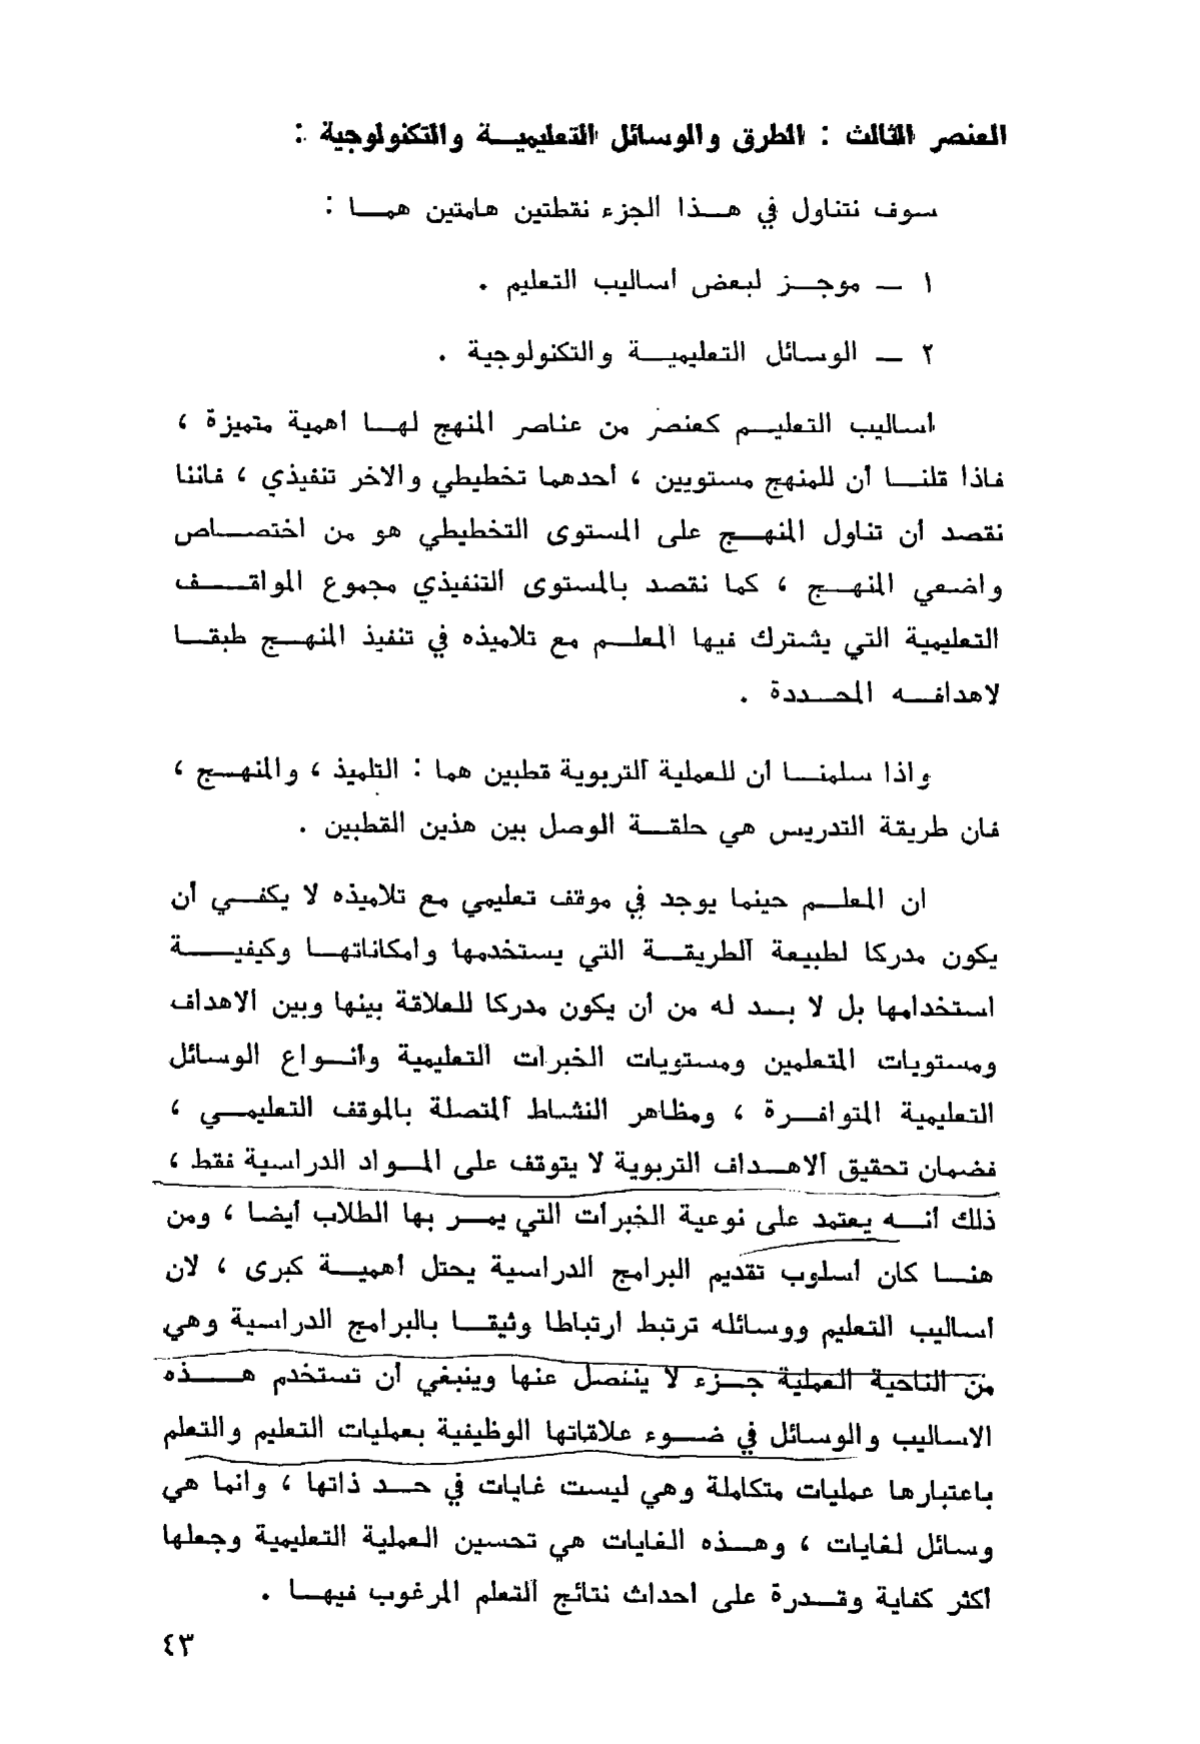 العنصر الثالث : الطرق والوسائل التعليمية والتكنولوجية :
سوف نتناول في هذا الجزء نقطتين هامتين هما :
١ ــ موجز لبعض اساليب التعليم .
٢ ــ الوسائل التعليمية والتكنولوجية .
اساليب التعليم كعنصر من عناصر المنهج لها اهمية متميزة ،
فاذا قلنا أن للمنهج مستويين ، أحدهما تخطيطي والاخر تنفيذي ، فاننا
نقصد أن تناول المنهج على المستوى التخطيطي هو من اختصاص
واضعي المنهج ، كما نقصد بالمستوى التنفيذي مجموع المواقف
التعليمية التي يشترك فيها المعلم مع تلاميذه في تنفيذ المنهج طبقا
لاهدافه المحددة .
واذا سلمنا ان للعملية التربوية قطبين هما : التلميذ ، والمنهج ،
فان طريقة التدريس هي حلقة الوصل بين هذين القطبين .
ان المعلم حينما يوجد في موقف تعليمي مع تلاميذه لا يكفي أن
يكون مدركا لطبيعة الطريقة التي يستخدمها وامكاناتها وكيفية
استخدامها بل لا بد له من أن يكون مدركا للعلاقة بينها وبين الاهداف
ومستويات المتعلمين ومستويات الخبرات التعليمية وأنواع الوسائل
التعليمية المتوافرة ، ومظاهر النشاط المتصلة بالموقف التعليمي ،
فضمان تحقيق الاهداف التربوية لا يتوقف على المواد الدراسية فقط ،
ذلك أنه يعتمد على نوعية الخبرات التي يمر بها الطلاب أيضا ، ومن
هنا كان أسلوب تقديم البرامج الدراسية يحتل أهمية كبرى ، لان
أساليب التعليم ووسائله ترتبط ارتباطا وثيقا بالبرامج الدراسية وهي
من الناحية العملية جزء لا ينفصل عنها وينبغي أن تستخدم هذه
الاساليب والوسائل في ضوء علاقاتها الوظيفية بعمليات التعليم والتعلم
باعتبارها عمليات متكاملة وهي ليست غايات في حد ذاتها ، وانما هي
وسائل لغايات ، وهذه الغايات هي تحسين العملية التعليمية وجعلها
أكثر كفاية وقدرة على احداث نتائج التعلم المرغوب فيها .
٤٣